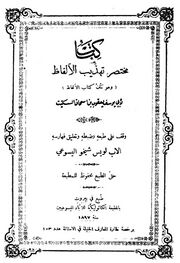 كتاب
مختصر تهذيب الألفاظ
وهو متن كتاب الألفاظ
لابي يوسف يعقوب بن اسحاق السكيت
وقف على طبعه وضبطه وتعليق فهارسه
الاب لويس شيخو اليسوعي
حق الطبع محفوظ للمطبعة
طبع في بيروت
بالمطبعة الكاثوليكية للآباء اليسوعيين
سنة ١٨٩٧
برخصة نظارة المعارف الجليلة في الاستانة